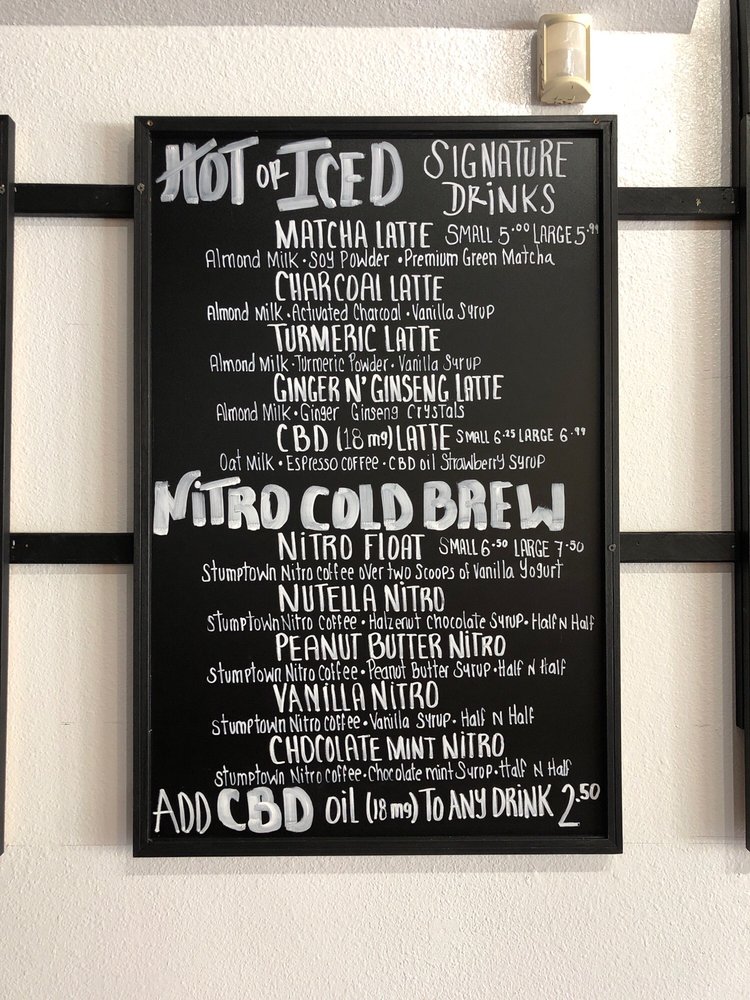 HOT OR ICED SIGNATURE DRINKS
MATCHA LATTE SMALL 5.00 LARGE 5.99
Almond Milk • Soy Powder • Premium Green Matcha
CHARCOAL LATTE
Almond Milk • Activated Charcoal • Vanilla Syrup
TURMERIC LATTE
Almond Milk • Turmeric Powder • Vanilla Syrup
GINGER N' GINSENG LATTE
Almond Milk • Ginger Ginseng Crystals
CBD (18 mg) LATTE SMALL 6.25 LARGE 6.99
Oat Milk • Espresso coffee • CBD oil Strawberry Syrup
NiTRO COLD BREW
NiTRO FLOAT SMALL 6.50 LARGE 7.50
Stumptown Nitro coffee over two Scoops of Vanilla Yogurt
NUTELLA NiTRO
Stumptown Nitro Coffee • Halzenut chocolate Syrup • Half N Half
PEANUT BUTTER NITRO
Stumptown Nitro Coffee • Peanut Butter Syrup • Half N Half
VANILLA NITRO
Stumptown Nitro Coffee • Vanilla Syrup • Half N Half
CHOCOLATE MINT NITRO
Stumptown Nitro Coffee • Chocolate mint Syrup • Half N Half
ADD CBD OiL (18 mg) TO ANY DRINK 2.50